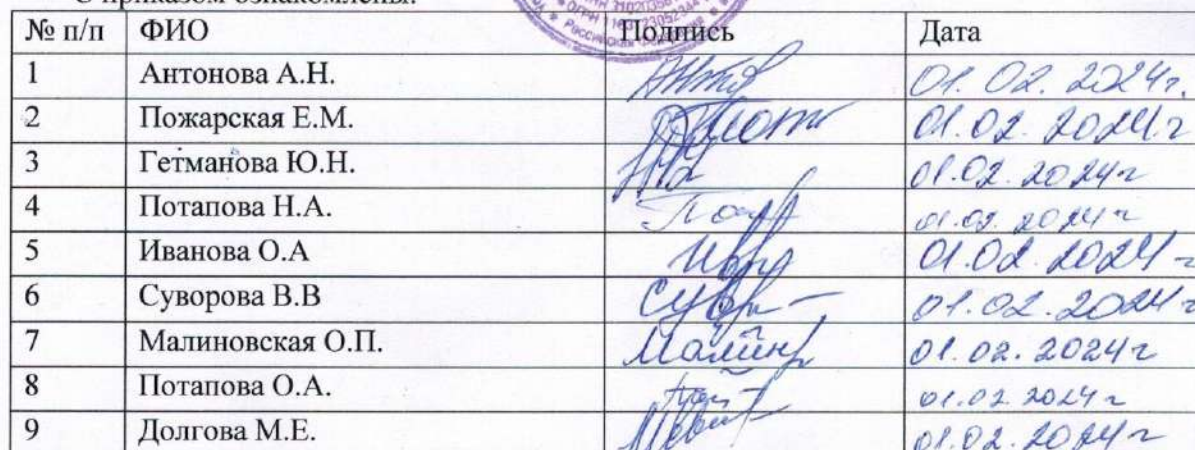 С приказом ознакомлены:
№ п/п ФИО Подпись Дата
1 Антонова А.Н. 01.02.2024г.
2 Пожарская Е.М. 01.02.2024.г
3 Гетманова Ю.Н. 01.02.2024г
4 Потапова Н.А. 01.02.2024г
5 Иванова О.А 01.02.2024г
6 Суворова В.В 01.02.2024г
7 Малиновская О.П. 01.02.2024г
8 Потапова О.А. 01.02.2024г
9 Долгова М.Е. 01.02.2024г